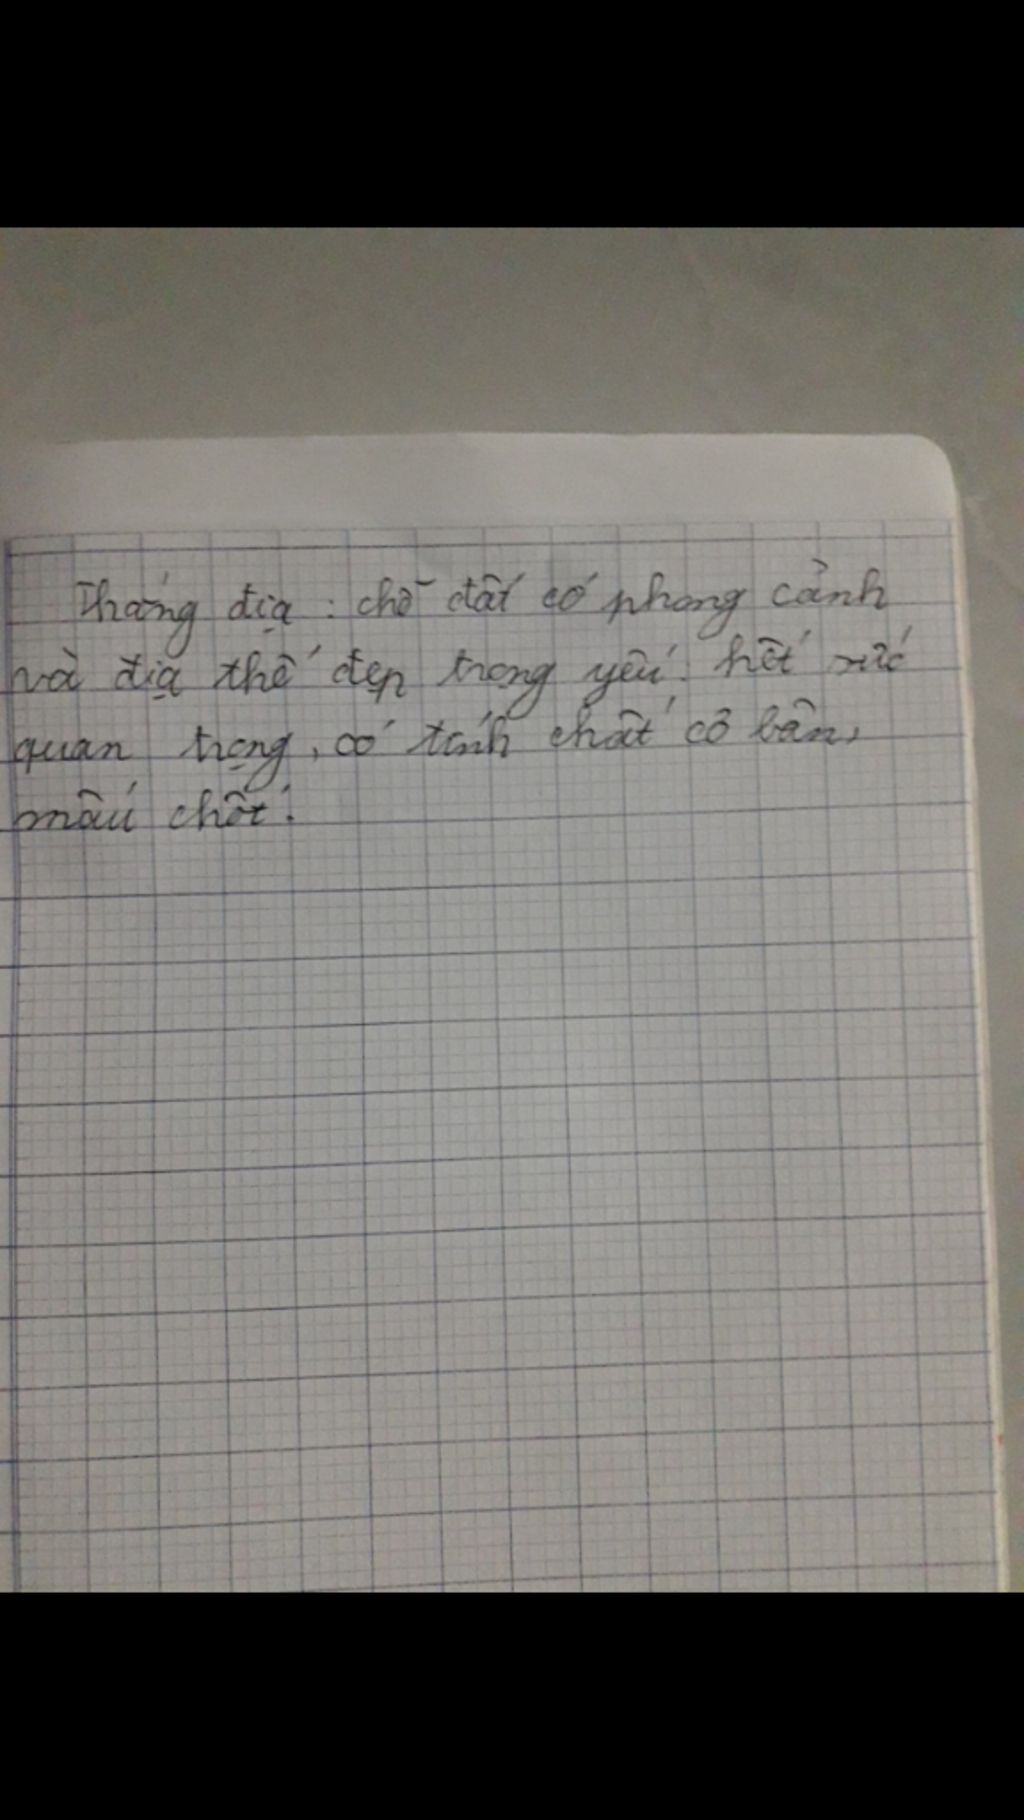 Thắng địa : chỗ đất có phong cảnh
và địa thế đẹp trọng yếu : hết sức
quan trọng, có tính chất cơ bản,
mấu chốt.